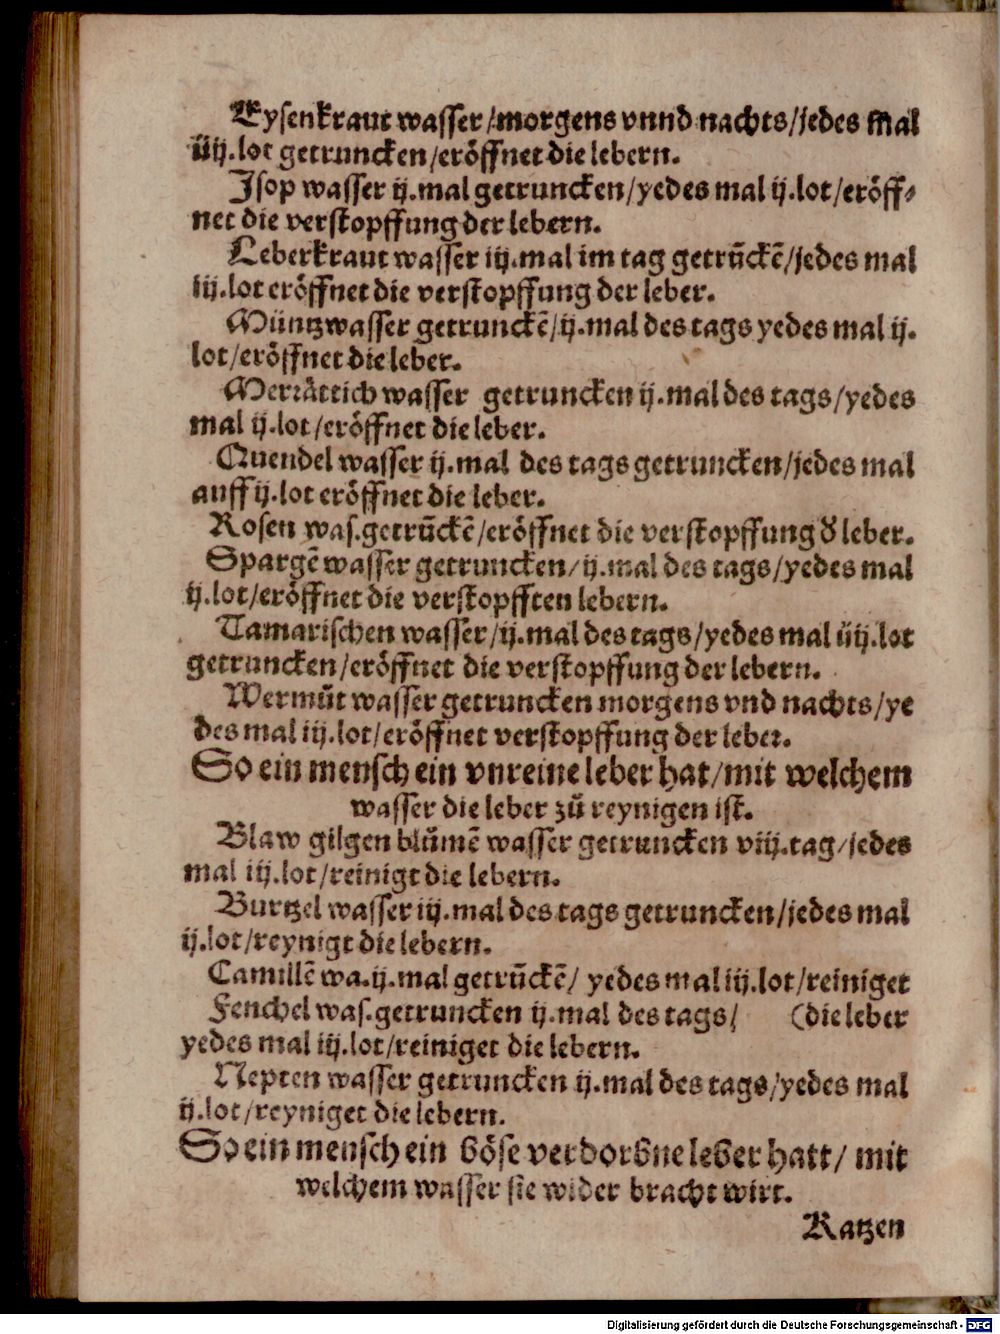 Eysenkraut wasser/morgens vnnd nachts/jedes mal
iiij.lot getruncken/eröffnet die lebern.
Jsop wasser ij.mal getruncken/yedes mal ij.lot/eröff⸗
net die verstopffung der lebern.
Leberkraut wasser iij.mal im tag getrũckẽ/jedes mal
iij.lot eröffnet die verstopffung der leber.
Müntzwasser getrunckẽ/ij.mal des tags yedes mal ij.
lot/eröffnet die leber.
Merrättich wasser getruncken ij.mal des tags/yedes
mal ij.lot/eröffnet die leber.
Quendel wasser ij.mal des tags getruncken/jedes mal
auff ij.lot eröffnet die leber.
Rosen was.getrũckẽ/eröffnet die verstopffung d̕ leber.
Spargẽ wasser getruncken/ij.mal des tags/yedes mal
ij.lot/eröffnet die verstopfften lebern.
Tamarischen wasser/ij.mal des tags/yedes mal iiij.lot
getruncken/eröffnet die verstopffung der lebern.
Wermůt wasser getruncken morgens vnd nachts/ye
des mal iij.lot/eröffnet verstopffung der leber.
So ein mensch ein vnreine leber hat/mit welchem
wasser die leber zů reynigen ist.
Blaw gilgen blůmẽ wasser getruncken viij.tag/jedes
mal iij.lot/reinigt die lebern.
Burtzel wasser iij.mal des tags getruncken/jedes mal
ij.lot/reynigt die lebern.
Camillẽ wa.ij.mal getrũckẽ/ yedes mal iij.lot/reiniget
Fenchel was.getruncken ij.mal des tags/ (die leber
yedes mal iij.lot/reiniget die lebern.
Nepten wasser getruncken ij.mal des tags/yedes mal
ij.lot/reyniget die lebern.
So ein mensch ein böse verdorbne leber hatt/ mit
welchem wasser sie wider bracht wirt.
Katzen
Digitalisierung gefördert durch die Deutsche Forschungsgemeinschaft - DFG